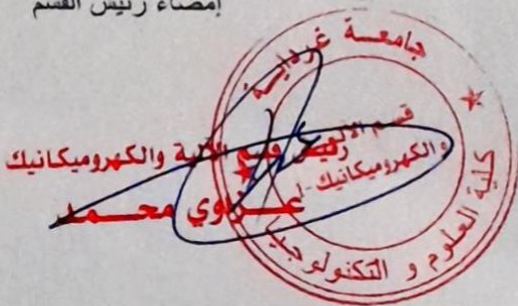 إمضاء رئيس القسم
جامعة غرداية
كلية العلوم و التكنولوجيا
قسم الآلية
والكهروميكانيك
رئيس قسم الآلية والكهروميكانيك
محمد